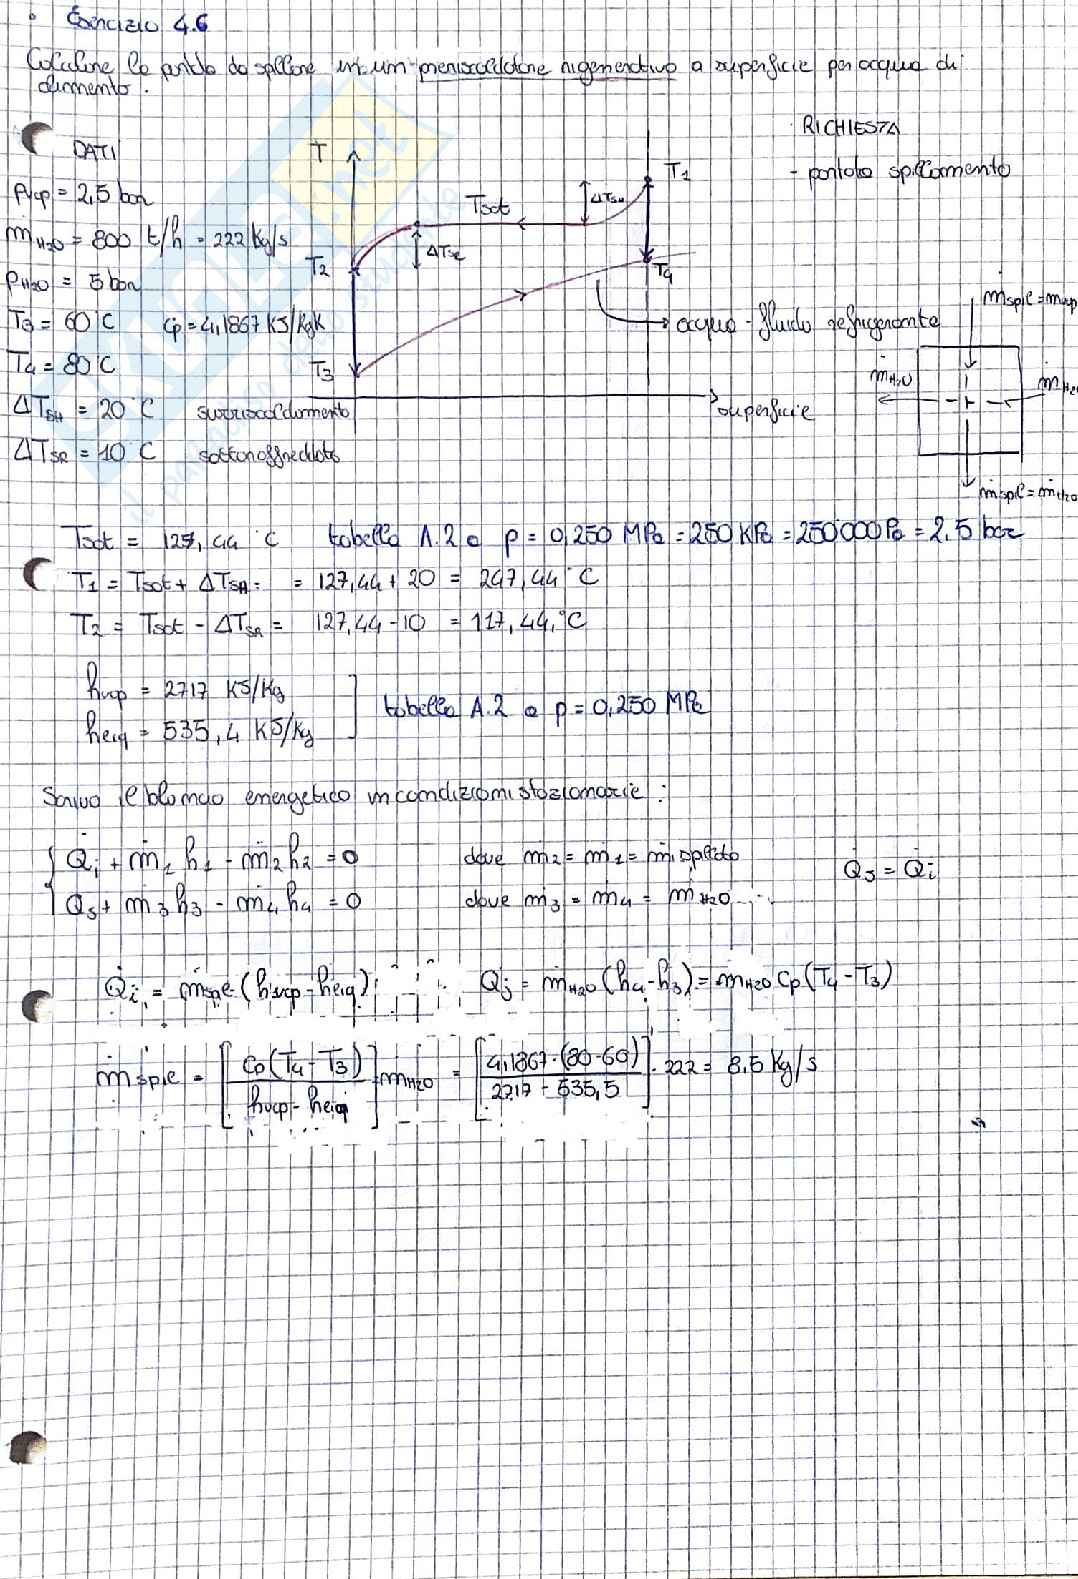 Esercizio 4.6
Calcolare la portata da spillare in un preriscaldatore rigenerativo a superficie per acqua di
alimento.
RICHIESTA
- portata spillamento
DATI
pvap = 2,5 bar
ṁH2O = 800 t/h = 222 kg/s
pH2O = 5 bar
T3 = 60°C cp = 4,1867 KJ/kgK
T4 = 80°C
ΔTSH = 20°C surriscaldamento
ΔTSR = 10°C sottoraffreddato
T
Tsat
ΔTSH
T1
ΔTSR
T2
T4
acqua - fluido refrigerante
T3
superficie
ṁspil = ṁvap
ṁH2O
ṁH2O
ṁspil = ṁH2O
Tsat = 127,44 °C tabella A.2 a p = 0,250 MPa = 250 KPa = 250000 Pa = 2,5 bar
T1 = Tsat + ΔTSH = = 127,44 + 20 = 247,44 °C
T2 = Tsat - ΔTSR = 127,44 - 10 = 117,44 °C
hvap = 2717 KJ/Kg
hliq = 535,4 KJ/Kg
tabella A.2 a p = 0,250 MPa
Scrivo il bilancio energetico in condizioni stazionarie :
Q̇i + ṁ1 h1 - ṁ2 h2 = 0 dove ṁ2 = ṁ1 = ṁspillato Q̇s = Q̇i
Q̇s + ṁ3 h3 - ṁ4 h4 = 0 dove ṁ3 = ṁ4 = ṁH2O
Q̇i = ṁspil (hvap - hliq) Q̇s = ṁH2O (h4 - h3) = ṁH2O Cp (T4 - T3)
ṁspil = [Cp (T4 - T3) / hvap - hliq] ṁH2O = [4,1867 · (80 - 60) / 2717 - 535,5] · 222 = 8,5 Kg/s